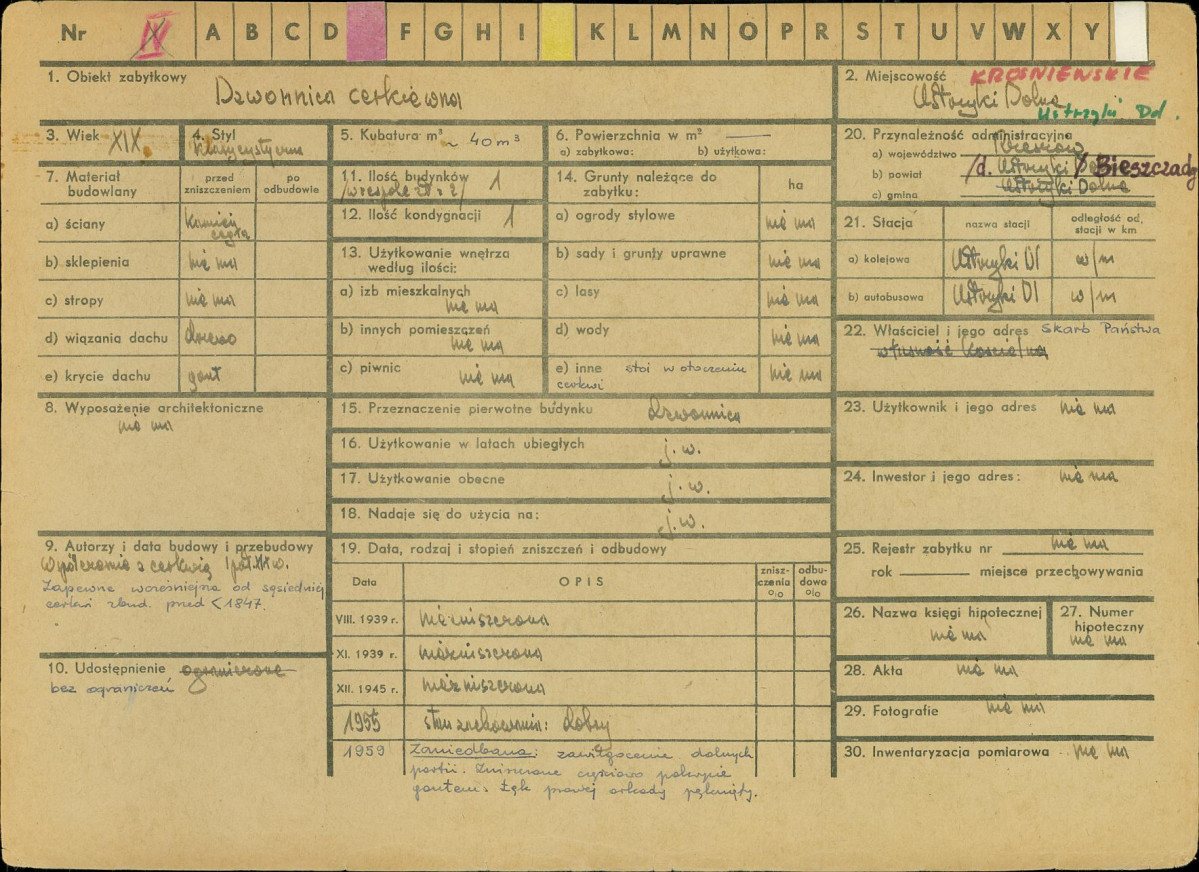 Nr IV A B C D F G H I K L M N O P R S T U V W X Y
1. Obiekt zabytkowy
Dzwonnica cerkiewna
2. Miejscowość KROŚNIEWSKIE
Ustrzyki Dolne
Ustrzyki Dol.
3. Wiek XIX.
4. Styl
klasycystyczna
5. Kubatura m³ ~ 40 m³
6. Powierzchnia w m² —
a) zabytkowa: b) użytkowa:
7. Materiał budowlany
przed zniszczeniem
po odbudowie
a) ściany kamień cegła
b) sklepienia nie ma
c) stropy nie ma
d) wiązania dachu drewno
e) krycie dachu gont
8. Wyposażenie architektoniczne
nie ma
9. Autorzy i data budowy i przebudowy
Współczesna z cerkwią I poł. XIX w.
Zapewne wcześniejsza od sąsiedniej
cerkwi zbud. przed < 1847.
10. Udostępnienie ograniczone
bez ograniczeń
11. Ilość budynków 1
12. Ilość kondygnacji 1
13. Użytkowanie wnętrza
według ilości:
a) izb mieszkalnych
nie ma
b) innych pomieszczeń
nie ma
c) piwnic nie ma
14. Grunty należące do
zabytku:
ha
a) ogrody stylowe nie ma
b) sady i grunty uprawne nie ma
c) lasy nie ma
d) wody nie ma
e) inne stoi w otoczeniu nie ma
cerkwi
15. Przeznaczenie pierwotne budynku Dzwonnica
16. Użytkowanie w latach ubiegłych j.w.
17. Użytkowanie obecne j.w.
18. Nadaje się do użycia na: j.w.
19. Data, rodzaj i stopień zniszczeń i odbudowy
Data OPIS zniszczenia % odbudowa %
VIII. 1939 r. niezniszczona
XI. 1939 r. niezniszczona
XII. 1945 r. niezniszczona
1955 stan zachowania: dobry
1959 Zaniedbana: zawilgocenie dolnych
partii. Zniszczone częściowo pokrycie
gontem. Łęk prawej arkady pęknięty.
20. Przynależność administracyjna
a) województwo Rzeszów
b) powiat /d. Ustrzyki Dolne/ Bieszczady
c) gmina Ustrzyki Dolne
21. Stacja nazwa stacji odległość od stacji w km
a) kolejowa Ustrzyki Dl w/m
b) autobusowa Ustrzyki Dl w/m
22. Właściciel i jego adres Skarb Państwa
własność kościelna
23. Użytkownik i jego adres nie ma
24. Inwestor i jego adres: nie ma
25. Rejestr zabytku nr nie ma
rok — miejsce przechowywania
26. Nazwa księgi hipotecznej
nie ma
27. Numer hipoteczny
nie ma
28. Akta nie ma
29. Fotografie nie ma
30. Inwentaryzacja pomiarowa nie ma